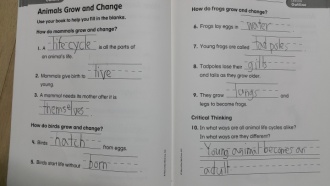 Animals Grow and Change
Use your book to help you fill in the blanks.
How do mammals grow and change?
1. A life cycle is all the parts
of an animal's life.
2. Mammals give birth to live
young.
3. A mammal needs its mother after it is
themselves
How do birds grow and change?
4. Birds hatch from eggs.
5. Birds start life without born
How do frogs grow and change?
6. Frogs lay eggs in water
7. Young frogs are called tadpoles
8. Tadpoles lose their gills
and tails as they grow older.
9. They grow lungs and
legs to become frogs.
Critical Thinking
10. In what ways are all animal life cycles alike?
In what ways are they different?
Young animal becomes an
adult